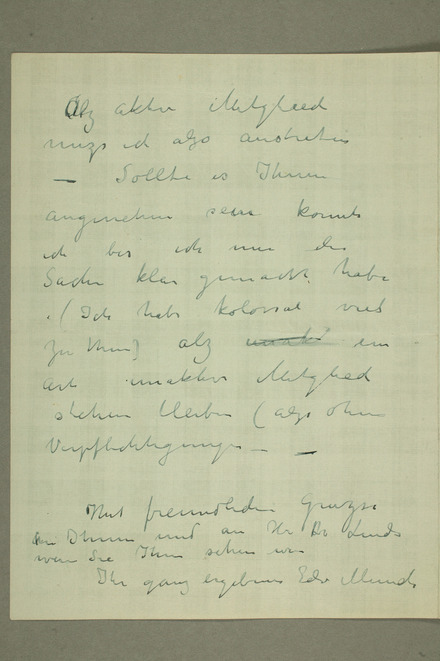 Alz aktiv Mitglied
muzs ich alzo austreten
— Sollte es Ihnen
angenehm sein konnte
ich bis ich mir die
Sache klar gemacht habe
(Ich habe kolossal viel
zu thun) alz ein
art inaktiv Mitglied
stehen bleiben (alzo ohne
Verpflichtigunge — —
Mit freundlichen Gruzse
an Ihnen und an Hr Dr Linde
wen Sie Ihm sehen
Ihr ganz ergebens Edv Munch